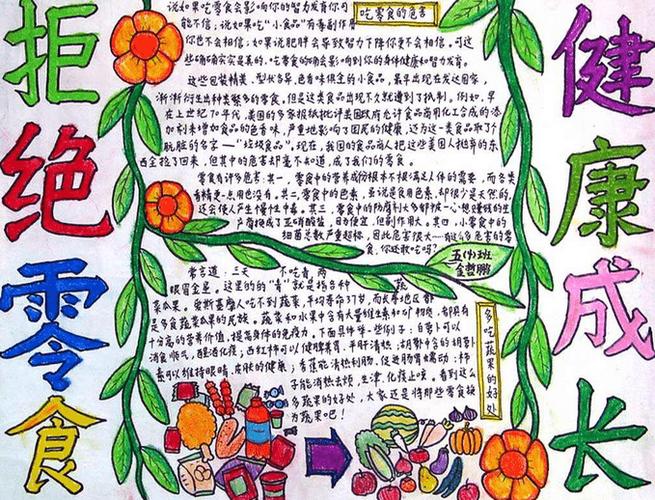 拒绝零食
健康成长
吃零食的危害
说如果吃零食会影响你的智力发育你可
能不信；说如果吃"小食品"有毒副作用
你也不会相信；如果说肥胖会导致智力下降你更不会相信。可这
些的确确实实是真的，吃零食的确会影响到你的身体健康和智力发育。
这些包装精美、型状多异、色香味俱全的小食品，最早出现在发达国家，
渐渐衍生出种类繁多的零食，但是这类食品出现不久就遭到了抵制。例如，早
在上世纪70年代，美国的多家报纸批评美国政府允许食品商用化工合成的添
加剂来增加食品的色香味，严重地影响了国民的健康，还为这一类食品取了个
肮脏的名字—"垃圾食品"。现在，我国的食品商人把这些美国人抛弃的东
西全捡了回来，但其中的危害却毫不知道，成了我们的零食。
零食有许多危害：其一，零食中的营养成份根本不能满足人体的需要，而各类
香精更一点用也没有。其二，零食中的色素，虽说是食用色素，却很少是天然的，
还会使人产生慢性中毒。其三，零食中的防腐剂大多都被一心想赚钱的生
产商换成了亚硝酸盐，因为便宜，但副作用大。其四，小零食中的
细菌总数严重超标，因此危害很大……有这么多危害的零
食，你还敢吃吗？
五(1)班
常言道：三天 不吃青，两
眼冒金星。这里的的"青"就是指各种 蔬
菜瓜果。爱斯基摩人吃不到蔬菜，平均寿命37岁，而长寿地区都
是多食蔬菜瓜果的民族。蔬菜和水果中含有大量维生素和矿物质，都具有
十分高的营养价值，提高身体的免疫力。下面具体举一些例子：白萝卜可以
消食顺气，醒酒化痰；西红柿可以健脾养胃，平肝清热；胡萝卜含的胡萝卜
素可以维持眼睛、皮肤的健康；香蕉能清热利肠，促进肠胃蠕动；柿
子能消热去烦，生津，化痰止咳。看到这么
多蔬果的好处，大家还是将那些零食换
为蔬果吧！
多吃蔬果的好处